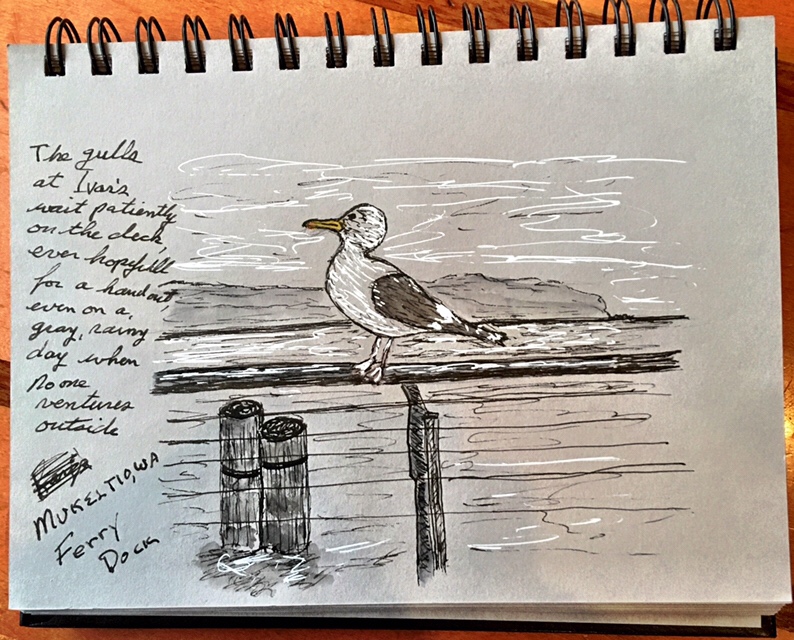 The gulls
at Ivar's
wait patiently
on the deck,
ever hopefull
for a handout,
even on a,
gray, rainy
day when
no one
ventures
outside
MUKELTIO, WA
Ferry
Dock